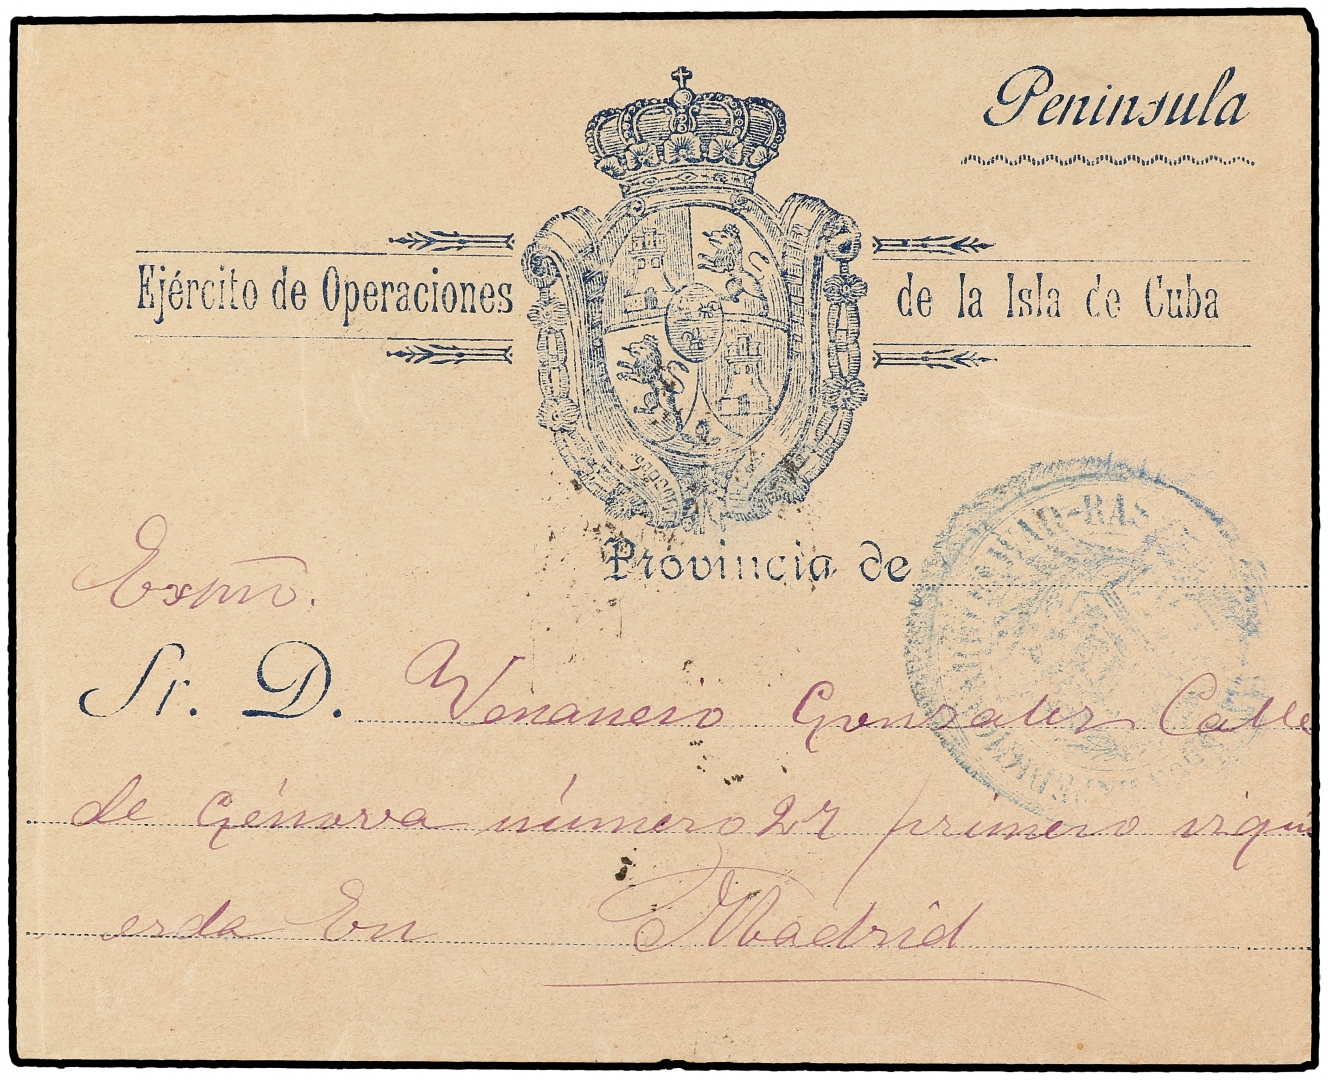 Península
Ejército de Operaciones de la Isla de Cuba
Provincia de
Exmo.
Sr. D. Venancio Gonzalez Calle
de Génova número 27 primero izqui
erda En Madrid